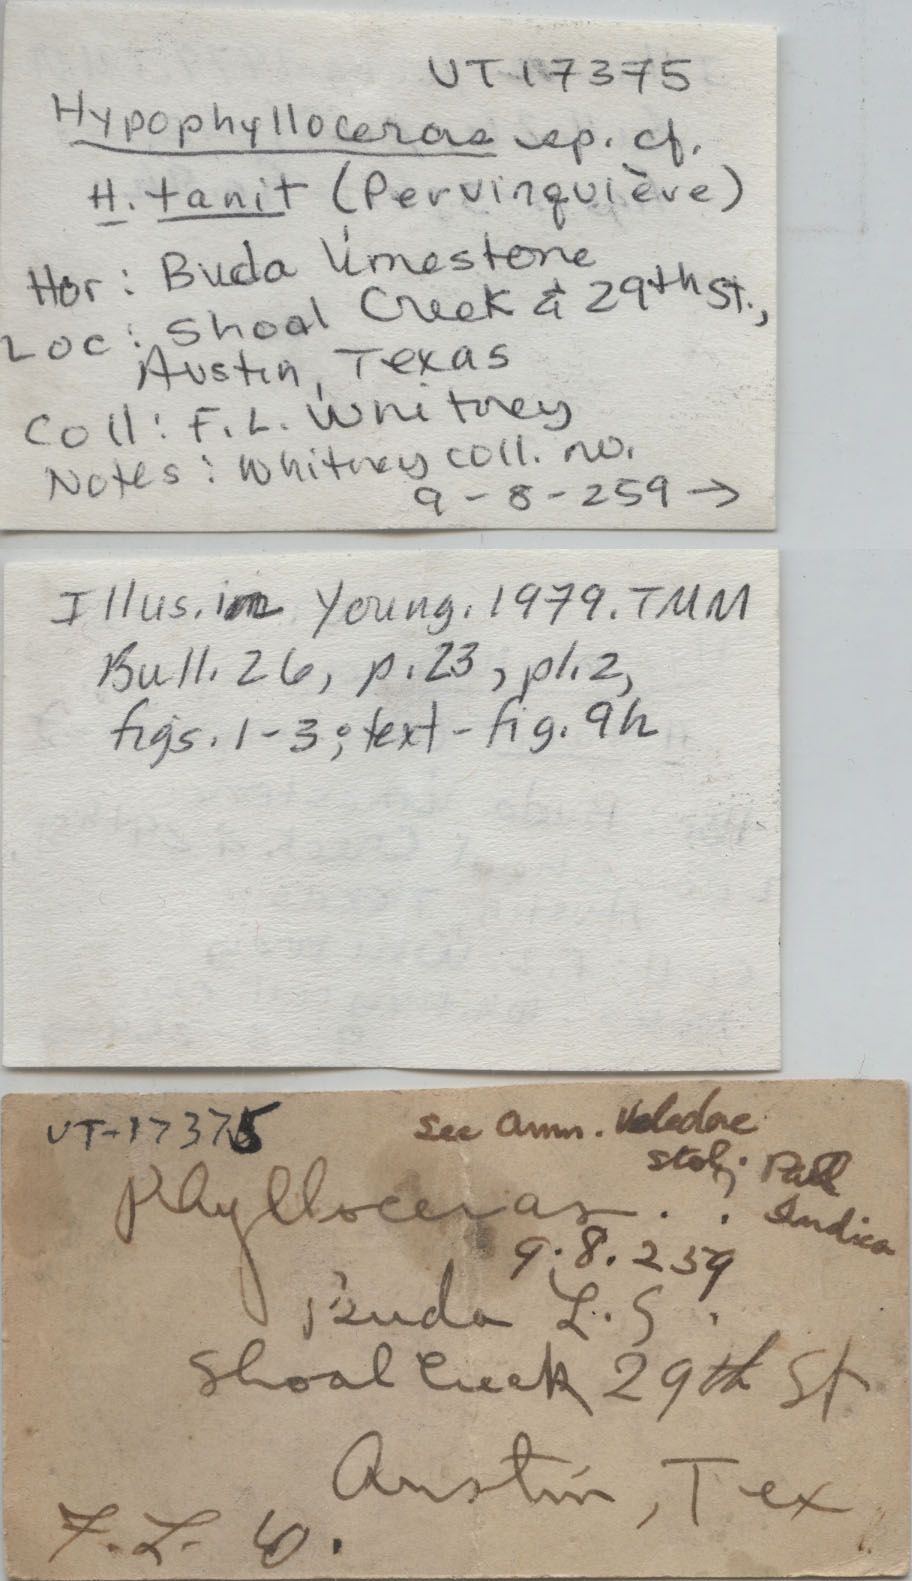 UT 17375
Hypophylloceras sp. cf.
H. tanit (Pervinquière)
Hor: Buda limestone
Loc: Shoal Creek & 29th St.,
Austin, Texas
Coll: F.L. Whitney
Notes: Whitney coll. no.
9-8-259 →
Illus. in Young. 1979. TMM
Bull. 26, p. 23, pl. 2,
figs. 1-3; text-fig. 9h
UT-17375
See Amm.
Indica
Phylloceras . .
9.8.259
Buda L.S.
Shoal Creek 29th St
Austin, Tex
F.L. W.